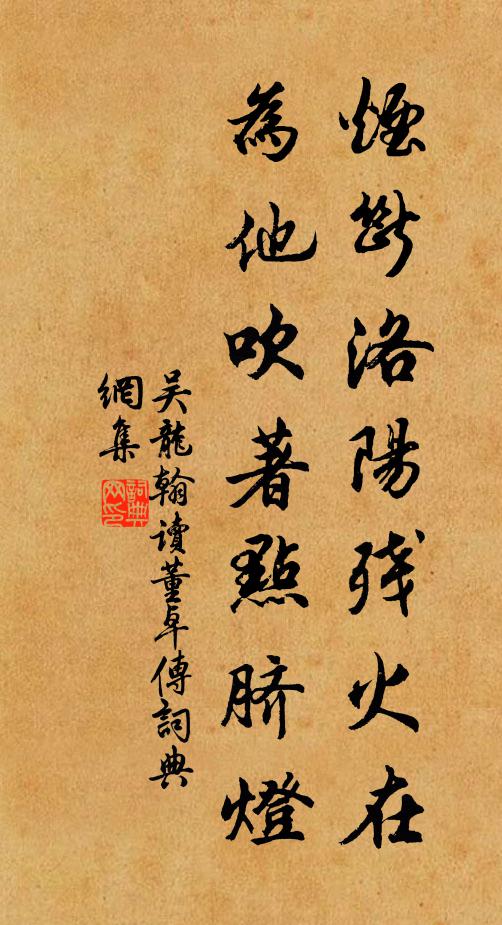 煙斷洛陽残火在
為他吹著點臍燈
吴龍翰讀董卓傳詞典
網集
詞典
网印